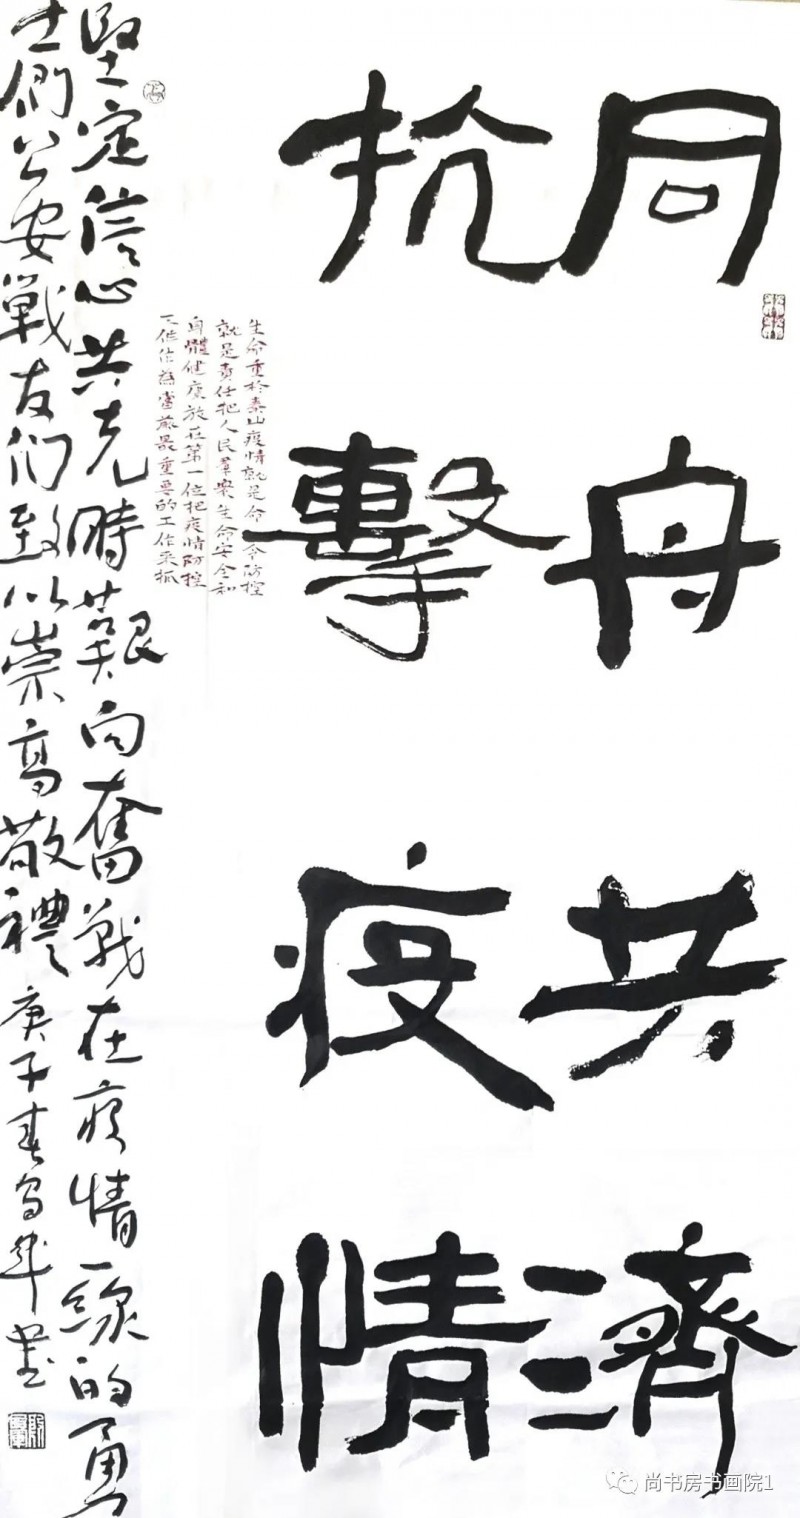 同舟共濟
抗擊疫情
生命重於泰山疫情就是命令防控
就是責任把人民羣衆生命安全和
身體健康放在第一位把疫情防控
工作作為當前最重要的工作來抓
堅定信心共克時艱向奮戰在疫情一線的勇
士們公安戰友們致以崇高敬禮 庚子春
尚书房书画院1